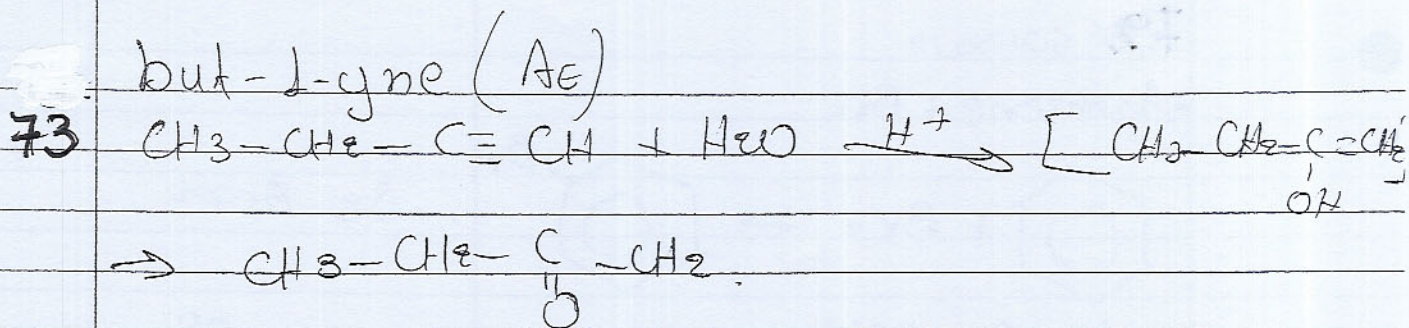 but-1-yne (AE)
73 CH3-CH2-C≡CH + H2O H+→ [CH3-CH2-C=CH2]
OH
→ CH3-CH2-C-CH2.
O